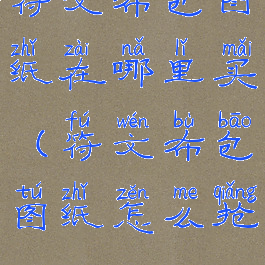 符文布包图
zhǐ zài nǎ lǐ mǎi
纸在哪里买
fú wén bù bāo
（符文布包
tú zhǐ zěn me qiǎng
图纸怎么抢